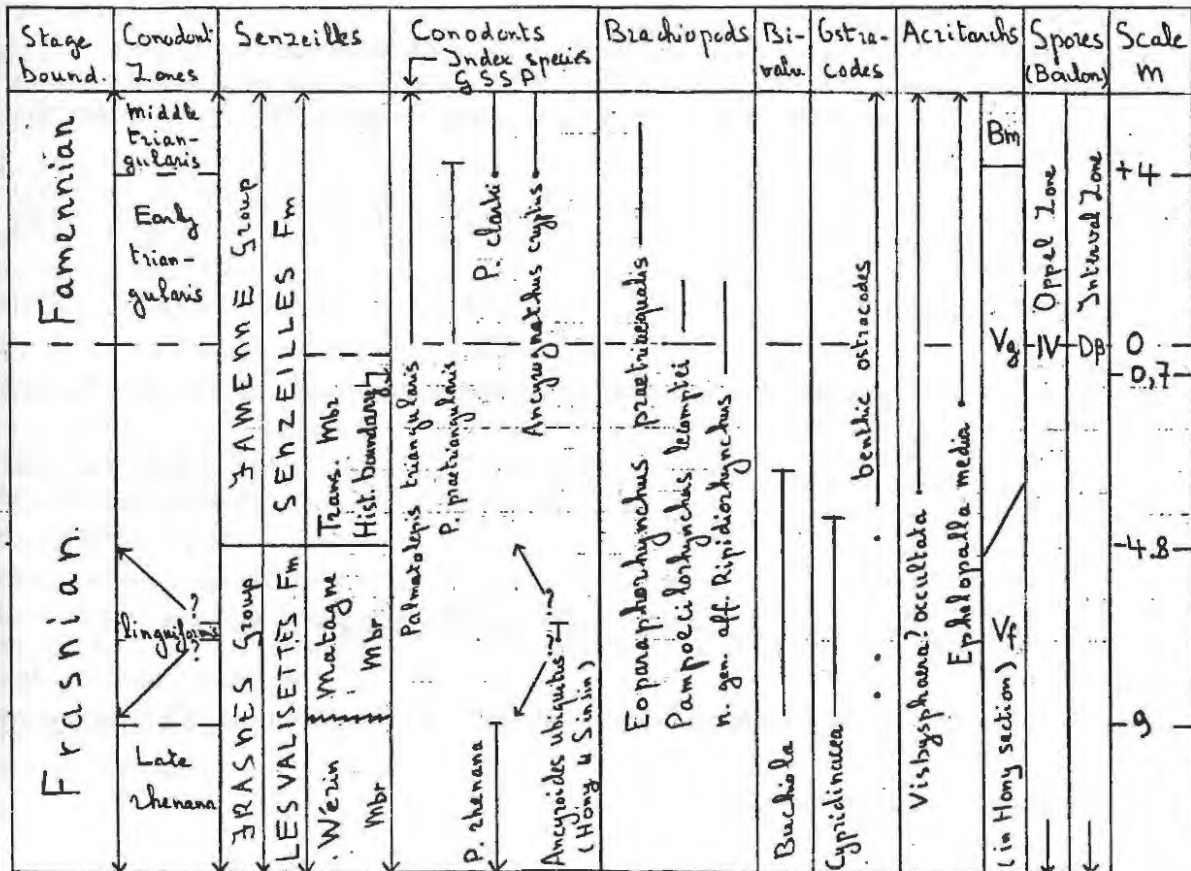 Stage bound.
Conodont Zones
Senzeilles
Conodonts
Index species
GSSP
Brachiopods
Bi-
valv.
Ostra-
codes
Acritarchs
Spores
(Boulon)
Scale
m
Famennian
Frasnian
middle
trian-
gularis
Early
trian-
gularis
?
linguiformis
?
Late
rhenana
FAMENNE Group
FRASNES Group
SENZEILLES Fm
LES VALISETTES Fm
Trans. Mbr
Hist. boundary
Matagne
Mbr
Werin
Mbr
Palmatolepis triangularis
P. praetriangularis
P. clarki
Ancyrognathus cryptus
P. rhenana
?
Ancyroides ubiquitus
(Hony & Sinsin)
Eoparaphorhynchus praetriaequalis
Pampoecilorhynchus lecomptei
n. gen. aff. Ripidiorhynchus
Buchiola
Cypridinacea
benthic ostracodes
Visbysphaera? occultata
Ephelopalla media
Bm
Vg
Vf
(in Hony section)
IV Oppel Zone
Dβ Interval Zone
+4
0
0,7
-4.8
-9